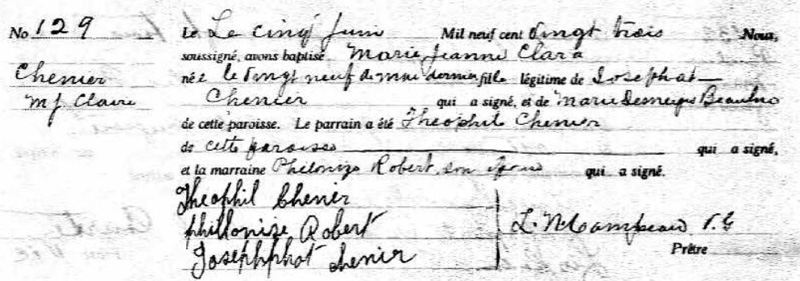 No 129
Le Le cinq Juin Mil neuf cent Vingt trois Nous,
soussigné, avons baptisé Marie Jeanne Clara
Chenier
née le Vingt neuf de mai dernier fille légitime de Josephat
M J. Claire
Chenier qui a signé, et de Marie Desneiges Beaulne
de cette paroisse. Le parrain a été Théophile Chenier
de cette paroisse qui a signé,
et la marraine Philonize Robert, son épouse qui a signé.
Theophil Chenir
phillonize Robert
L. N. Campeau
Josephphat chenir
Prêtre